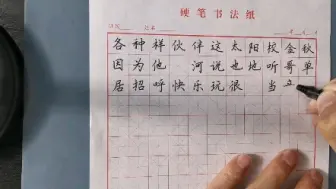 硬笔书法纸
各种样伙伴这太阳校金秋
因为他 河说也地听哥单
居招呼快乐玩很 当